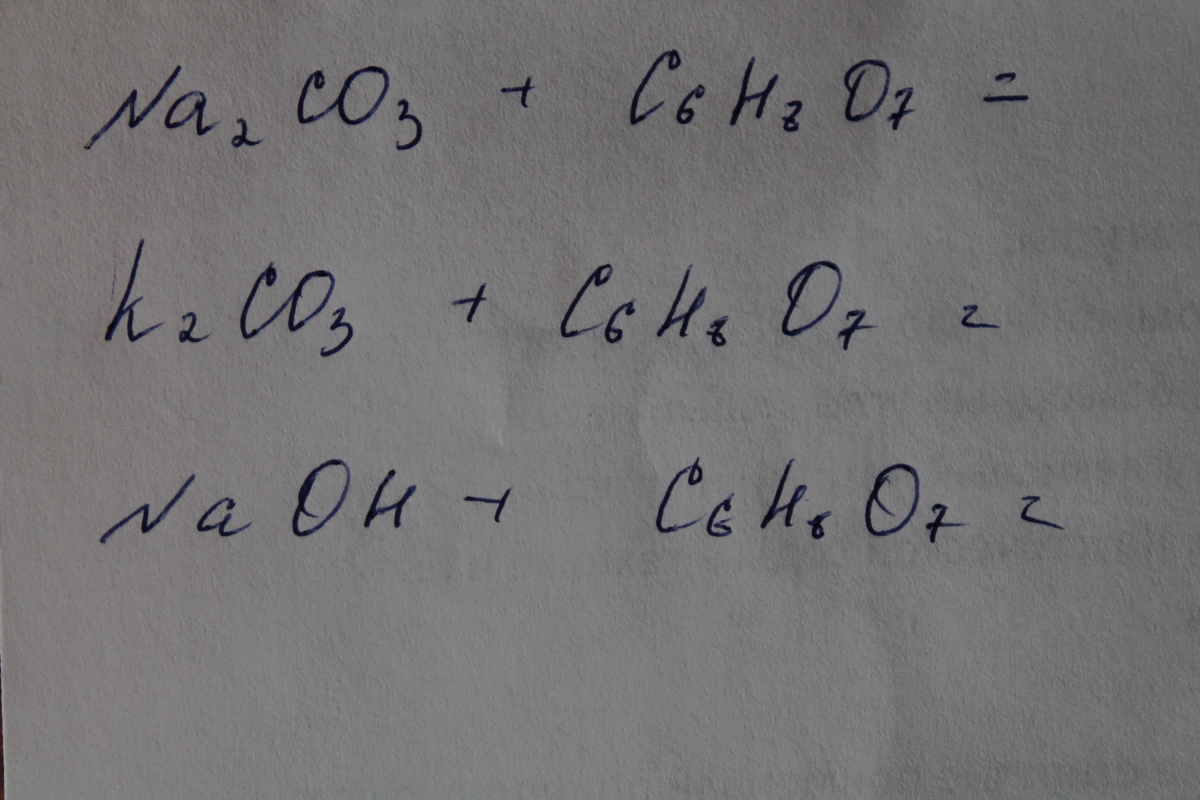 Na₂CO₃ + C₆H₈O₇ =
K₂CO₃ + C₆H₈O₇ =
NaOH + C₆H₈O₇ =